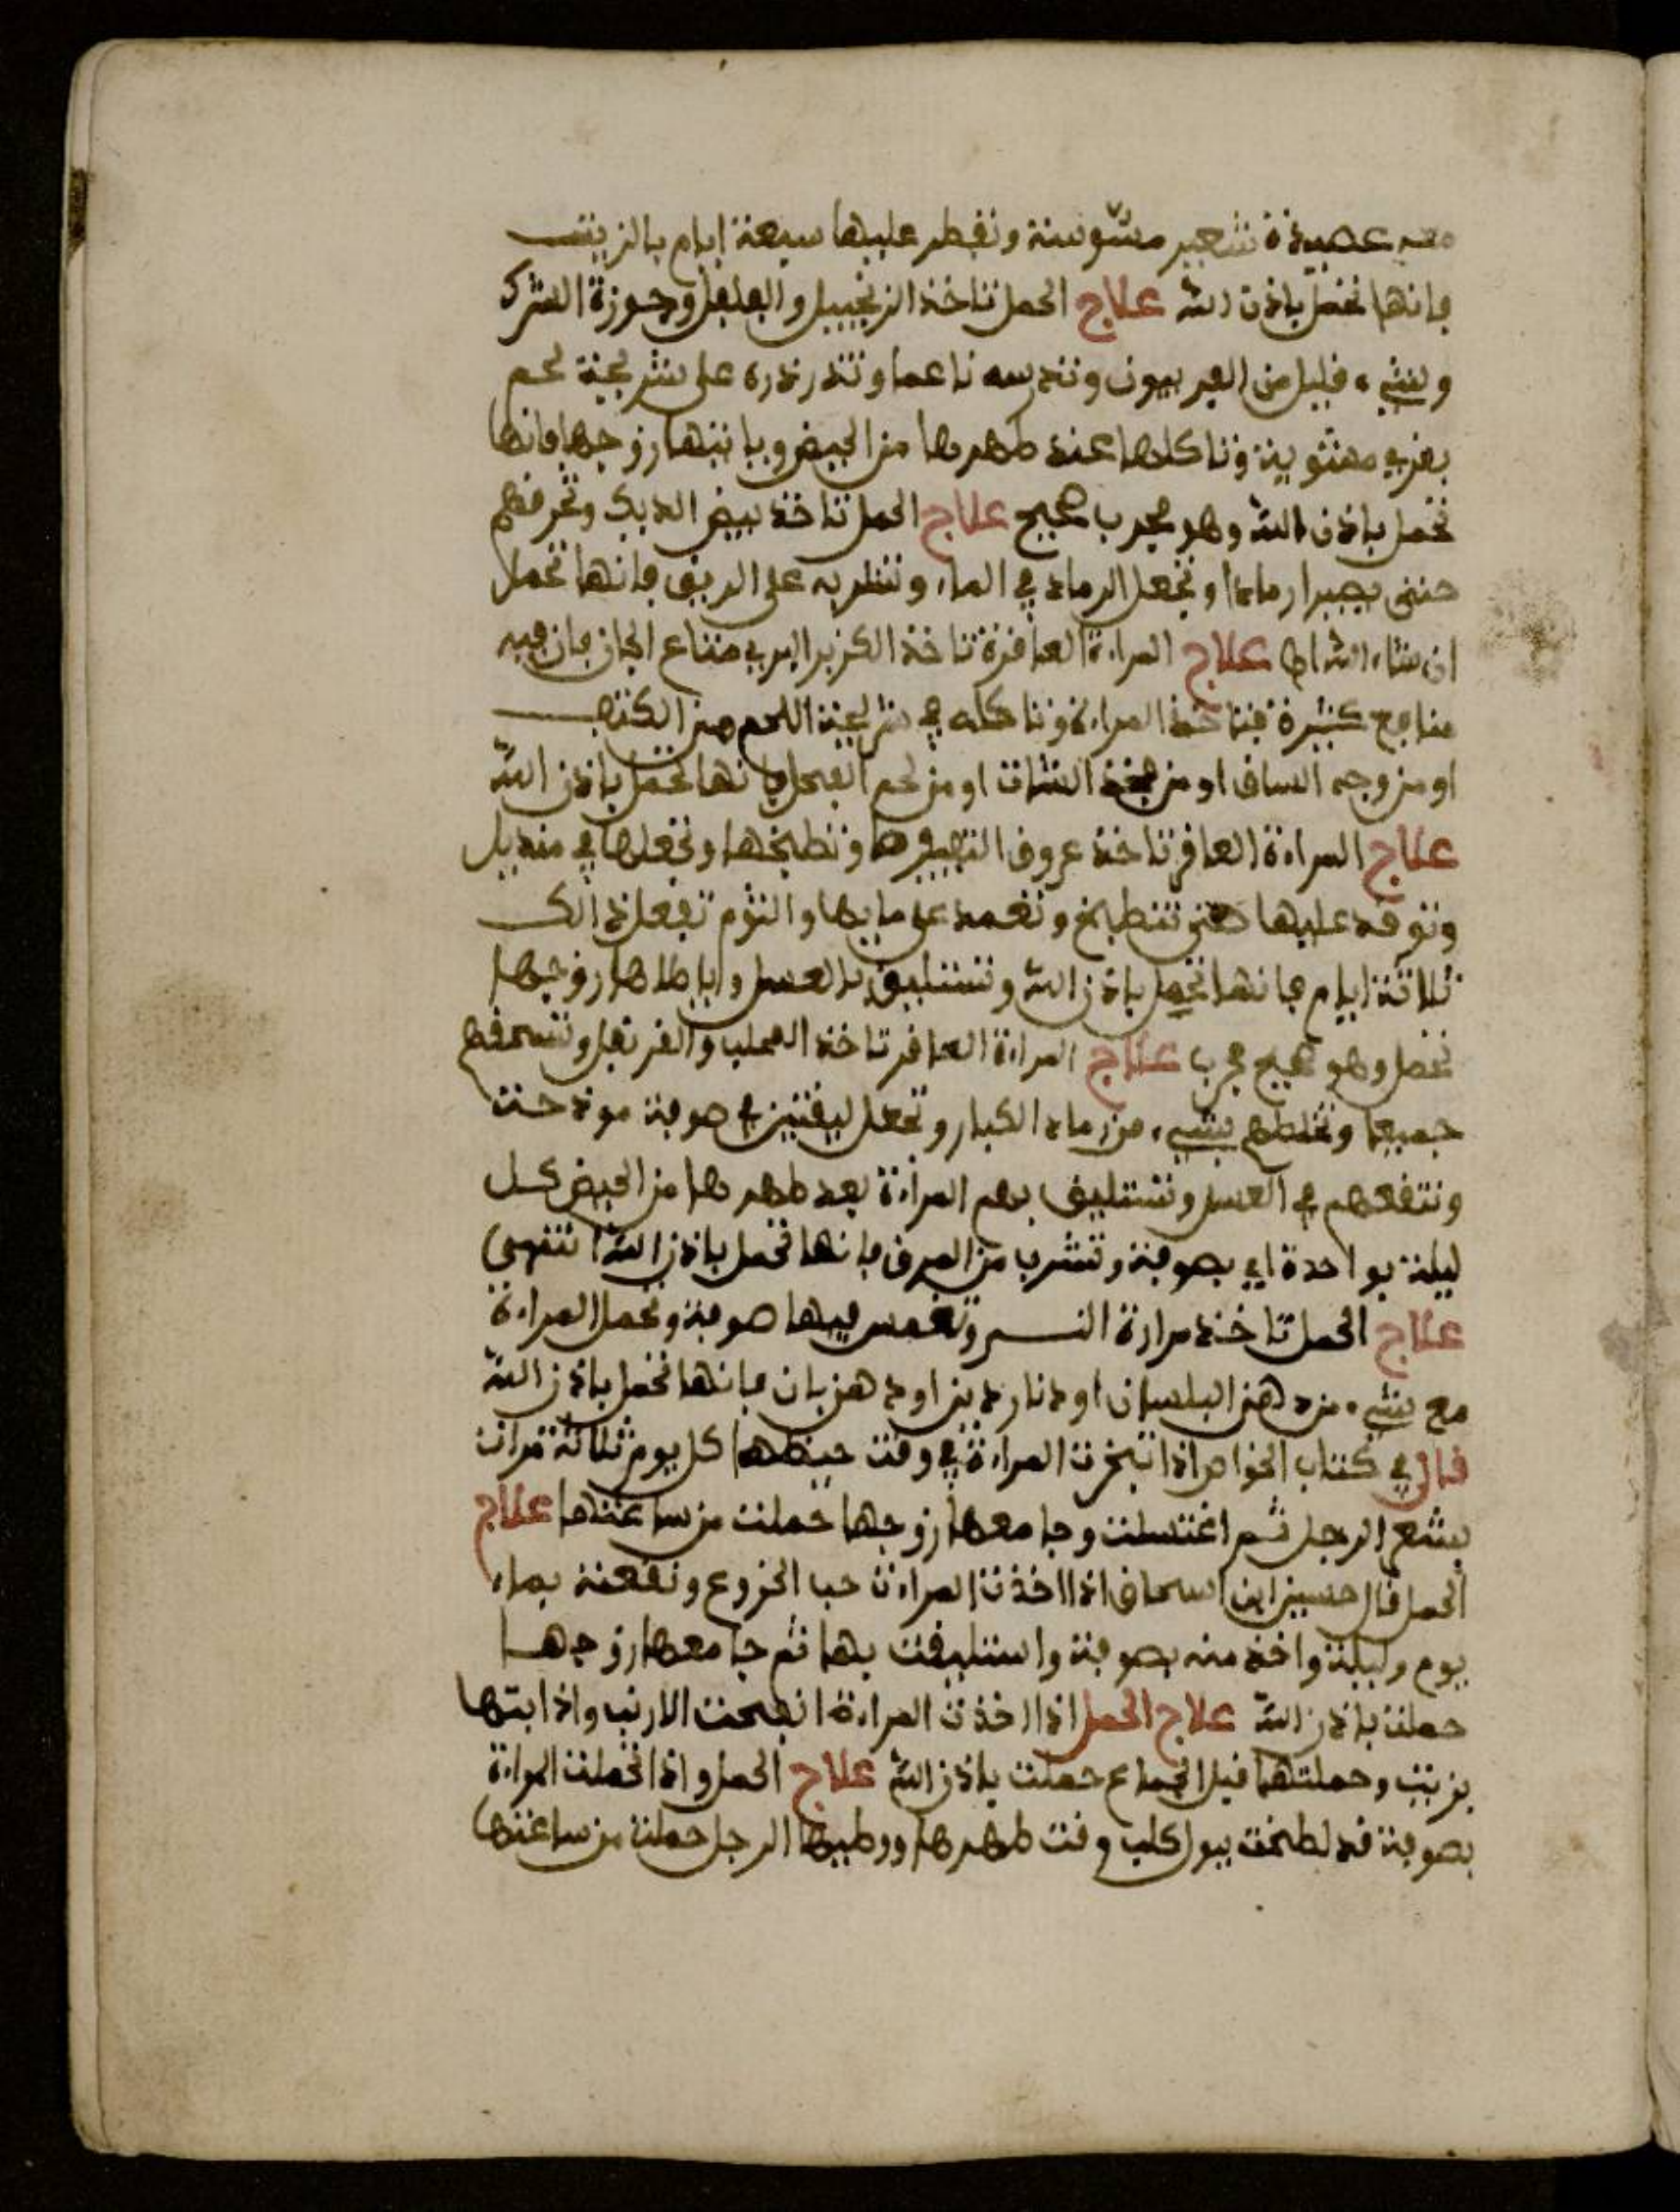 معه عصيدة شعير مشوشة وتفطر عليها سبعة ايام بالزيت
فانها تحمل باذن الله علاج الحمل تاخذ الزنجبيل والفلفل وجوزة الشرك
وشيء قليل من الفربيون وتدرسه ناعما وتذرذره على شريحة لحم
بقري مشوية وتاكلها عند طهرها من الحيض وياتيها زوجها فانها
تحمل باذن الله وهو مجرب صحيح علاج الحمل تاخذ بيض الديك وتحرقهم
حتى يصيرا رمادا وتجعل الرماد في الماء وتشربه على الريق فانها تحمل
ان شاء الله ايضا علاج المراءة العاقرة تاخذ الكزبر البري متاع الجان فان فيه
منافع كثيرة فتاخذ المراءة وتاكله في شريحة اللحم من الكتف
او من وجه الساق او من فخذ الشات او من لحم الفحل فانها تحمل باذن الله
علاج المراءة العاقر تاخذ عروق وتطبخها وتجعلها في منديل
وتوقد عليها حتى تنطبخ وتغمد على مايها والثوم تفعل ذالك
ثلاثة ايام فانها تحمل باذن الله وتستليق بالعسل واياطاها زوجها
تحمل وهو صحيح مجرب علاج المراءة العاقر تاخذ المحلب والقرنفل وتسحقهم
جميعا وتخلطهم بشيء من رماد الكبار وتجعل ليقتين في صوفة موذحت
وتنقعهم في العسل وتستليق بهم المراءة بعد طهرها من الحيض كل
ليلة بواحدة اي بصوفة وتشرب من المرق فانها تحمل باذن الله انتهى
علاج الحمل تاخذ مرارة النسر وتغمس فيها صوفة وتحمل المراءة
مع شيء من دهن البلسان او دناردين او دهن بان فانها تحمل باذن الله
قال في كتاب الخواص اذا تبخرت المراءة في وقت حيظها كل يوم ثلاثة مرات
بشعر الرجل ثم اغتسلت وجامعها زوجها حملت من ساعتها علاج
الحمل قال حسين ابن اسحاق اذا اخذت المراءت حب الخروع ونقعته بماء
يوم وليلة واخذ منه بصوفة واستليقت بها ثم جامعها زوجها
حملت باذن الله علاج الحمل اذا اخذت المراءة انفحت الارنب واذابتها
بزيت وحملتها قبل الجماع حملت باذن الله علاج الحمل واذا تحملت المراءة
بصوفة قد لطخت ببول كلب وقت طهرها ووطيها الرجل حملت من ساعتها